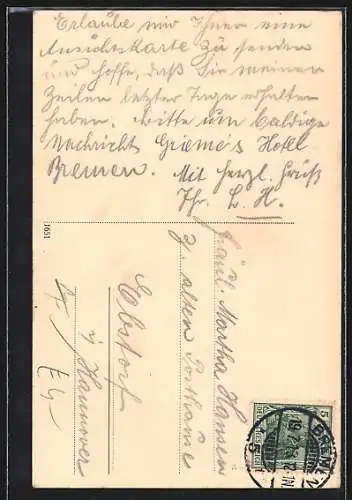 Erlaube mir Ihnen eine
Ansichtskarte zu senden
und hoffe, daß Sie meinen
Zeilen letzter Tage erhalten
haben. Bitte um baldige
Nachricht Grieme's Hotel
Bremen. Mit herzl. Gruß
Ihr L. H.
1651
Fräul. Martha Hansen
z. alten Posthause
Ebstorf
i/ Hannover
5
BREMEN